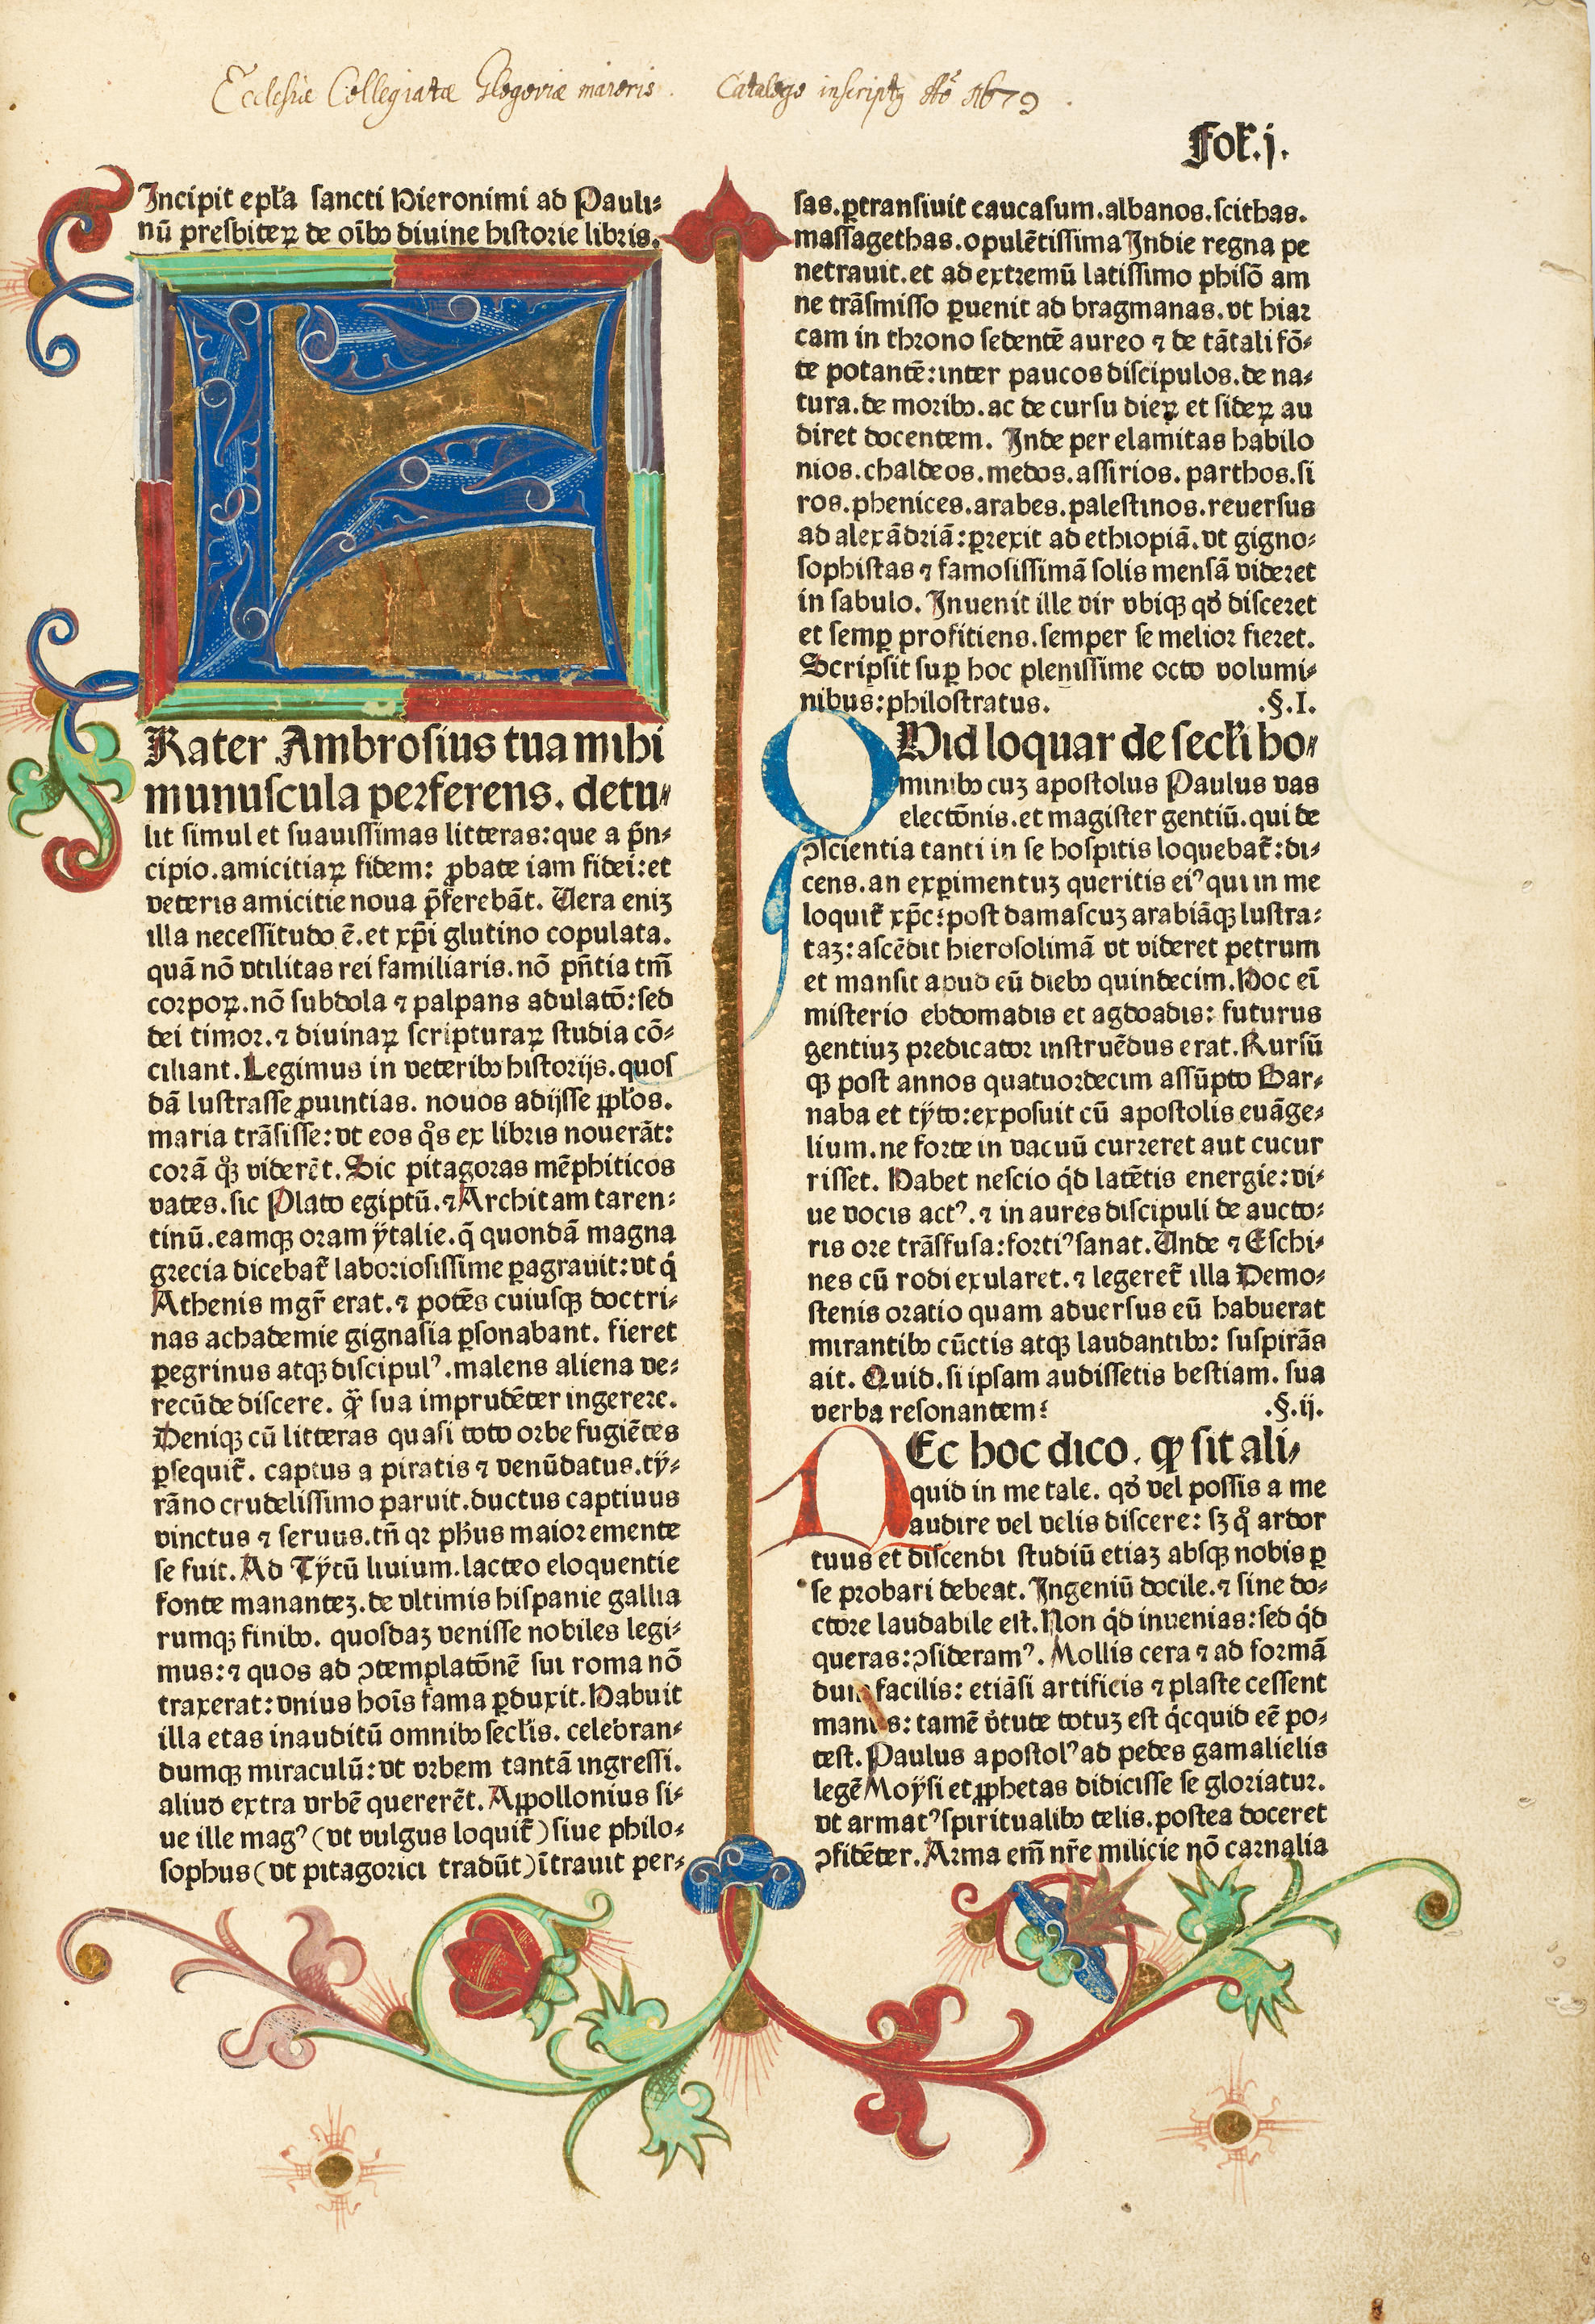 Ecclesiæ Collegiatæ Glogoviæ maioris. Catalogo inscriptꝰ Aō 1679.
Fol̃.j.
Incipit epĺa sancti Hieronimi ad Pauli⸗
nū presbiteꝝ de oībꝰ diuine historie libris.
F
Rater Ambrosius tua mihi
munuscula perferens. detu⸗
lit simul et suauissimas litteras: que a pñ⸗
cipio.amicitiaꝝ fidem: ꝓbate iam fidei: et
veteris amicitie noua p̃ferebāt. Uera eniꝫ
illa necessitudo ē.et xp̄i glutino copulata.
quā nō vtilitas rei familiaris.nō pn̄tia tm̄
corpoꝝ.nō subdola ⁊ palpans adulatō: sed
dei timor.⁊ diuinaꝝ scripturaꝝ studia cō⸗
ciliant. Legimus in veteribꝰ historijs.quos
dā lustrasse ꝓuintias. nouos adijsse ꝓpĺos.
maria trāsisse: vt eos qͦs ex libris nouerāt:
corā qͦꝫ viderēt. Sic pitagoras mēphiticos
vates.sic Plato egiptū.⁊ Architam taren⸗
tinū.eamqꝫ oram ÿtalie.q̄ quondā magna
grecia dicebat̃ laboriosissime ꝑagrauit: vt qͥ
Athenis mgr̄ erat.⁊ potēs cuiusqꝫ doctri⸗
nas achademie gignasia ꝑsonabant. fieret
ꝑegrinus atqꝫ discipulꝰ.malens aliena ve⸗
recūde discere. qͣꝫ sua imprudēter ingerere.
Deniqꝫ cū litteras quasi toto orbe fugiētes
ꝑsequit̃. captus a piratis ⁊ venūdatus.tÿ⸗
rāno crudelissimo paruit.ductus captiuus
vinctus ⁊ seruus.tn̄ qꝛ pħus maior emente
se fuit. Ad Tÿtū liuium.lacteo eloquentie
fonte mananteꝫ.de vltimis hispanie gallia
rumqꝫ finibꝰ. quosdaꝫ venisse nobiles legi⸗
mus: ⁊ quos ad ꝯtemplatōnē sui roma nō
traxerat: vnius hoīs fama ꝑduxit. Habuit
illa etas inauditū omnibꝰ secĺis. celebran⸗
dumqꝫ miraculū: vt vrbem tantā ingressi.
aliud extra vrbē quererēt. Appollonius si⸗
ue ille magꝰ (vt vulgus loquit̃) siue philo⸗
sophus (vt pitagorici tradūt) ītrauit per⸗
sas.ꝑtransiuit caucasum.albanos.scithas.
massagethas.opulētissima Indie regna pe
netrauit.et ad extremū latissimo phisō am
ne trāsmisso ꝑuenit ad bragmanas.vt hiar
cam in throno sedentē aureo ⁊ de tātali fō⸗
te potantē: inter paucos discipulos.de na⸗
tura.de moribꝰ.ac de cursu dieꝝ et sideꝝ au
diret docentem. Inde per elamitas babilo
nios.chaldeos.medos.assirios.parthos.si
ros.phenices.arabes.palestinos.reuersus
ad alexādriā: ꝑrexit ad ethiopiā.vt gigno⸗
sophistas ⁊ famosissimā solis mensā videret
in sabulo. Inuenit ille vir vbiqꝫ qđ disceret
et semꝑ profitiens.semper se melior fieret.
Scripsit suꝑ hoc plenissime octo volumi⸗
nibus: philostratus. .§.I.
QUid loquar de secĺi ho⸗
minibꝰ cuꝫ apostolus Paulus vas
electōnis.et magister gentiū.qui de
ꝯscientia tanti in se hospitis loquebat̃: di⸗
cens.an exꝑimentuꝫ queritis eiꝰ qui in me
loquit̃ xp̄c: post damascuꝫ arabiāqꝫ lustra⸗
taꝫ: ascēdit hierosolimā vt videret petrum
et mansit apud eū diebꝰ quindecim. Hoc eī
misterio ebdomadis et agdoadis: futurus
gentiuꝫ predicator instruēdus erat. Rursū
qꝫ post annos quatuordecim assūpto Bar⸗
naba et tÿto: exposuit cū apostolis euāge⸗
lium.ne forte in vacuū curreret aut cucur
risset. Habet nescio qͥd latētis energie: vi⸗
ue vocis actꝰ.⁊ in aures discipuli de aucto⸗
ris ore trāsfusa: fortiꝰ sanat. Unde ⁊ Eschi⸗
nes cū rodi exularet.⁊ legeret̃ illa Demo⸗
stenis oratio quam aduersus eū habuerat
mirantibꝰ cūctis atqꝫ laudantibꝰ: suspirās
ait. Quid.si ipsam audissetis bestiam.sua
verba resonantem: .§.ij.
NEc hoc dico. ꝙ sit ali⸗
quid in me tale. qđ vel possis a me
audire vel velis discere: sꝫ qͦ ardor
tuus et discendi studiū etiaꝫ absqꝫ nobis ꝑ
se probari debeat. Ingeniū docile.⁊ sine do⸗
ctore laudabile est. Non qͥd inuenias: sed qͥd
queras: ꝯsideramꝰ. Mollis cera ⁊ ad formā
facilis: etiāsi artificis ⁊ plaste cessent
manus: tamē v̓tute totuꝫ est qͥcquid eē po⸗
test. Paulus apostolꝰ ad pedes gamalielis
legē Moÿsi et ꝓphetas didicisse se gloriatur.
vt armatꝰ spiritualibꝰ telis.postea doceret
ꝯfidēter. Arma em̄ nr̄e milicie nō carnalia